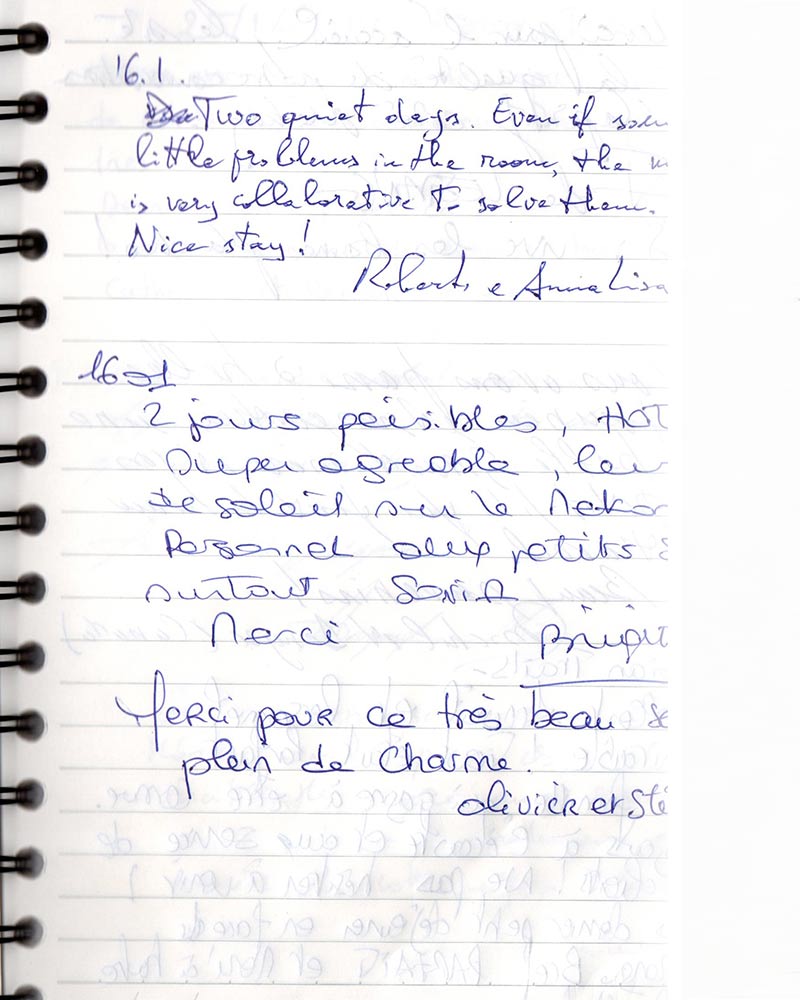 16.1.
Two quiet days. Even if som
little problems in the room, the
is very collaborative to solve them.
Nice stay!
Roberto e Anna Lisa
16 01
2 jours paisibles, HOT
Super agreable, lev
de soleil sur le Nekor
Personnel aux petits
surtout SONIA
Merci Brigit
Merci pour ce très beau se
plein de charme.
Olivier et Sté